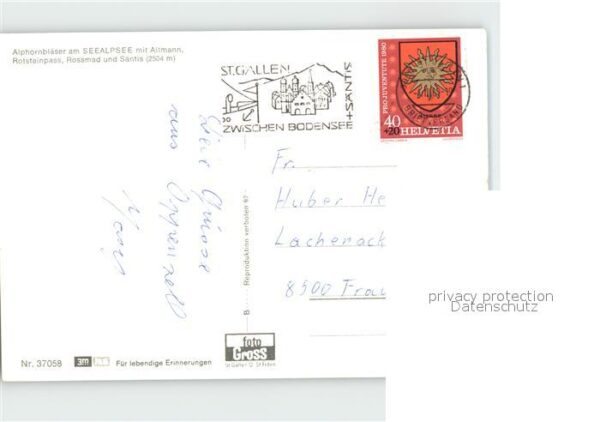 Alphornbläser am SEEALPSEE mit Altmann,
Rotsteinpass, Rossmad und Säntis (2504 m)
ST. GALLEN
SÄNTIS
ZWISCHEN BODENSEE
PRO JUVENTUTE 1980
40
+20
HELVETIA
Liebe Grüsse
aus Appenzell
Fr.
Huber He
Lachenack
8500 Frau
B
Reproduktion verboten
foto
Gross
St. Gallen
Nr. 37058
3m
Für lebendige Erinnerungen
privacy protection
Datenschutz